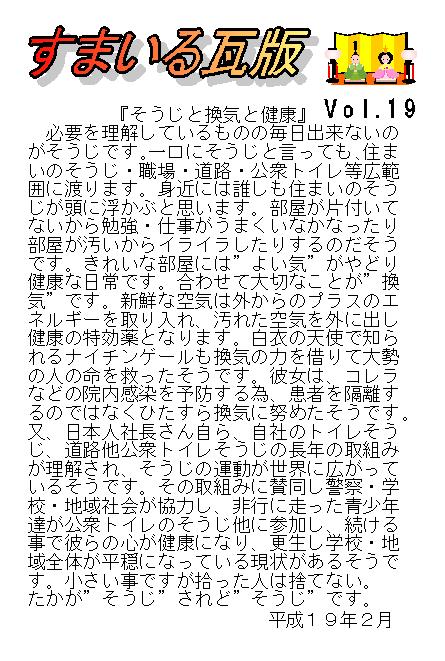 すまいる瓦版
『そうじと換気と健康』 Vol.19
必要を理解しているものの毎日出来ないの
がそうじです。一口にそうじと言っても、住ま
いのそうじ・職場・道路・公衆トイレ等広範
囲に渡ります。身近には誰しも住まいのそう
じが頭に浮かぶと思います。部屋が片付いて
ないから勉強・仕事がうまくいなかなったり
部屋が汚いからイライラしたりするのだそう
です。きれいな部屋には”よい気”がやどり
健康な日常です。合わせて大切なことが”換
気”です。新鮮な空気は外からのプラスのエ
ネルギーを取り入れ、汚れた空気を外に出し
健康の特効薬となります。白衣の天使で知ら
れるナイチンゲールも換気の力を借りて大勢
の人の命を救ったそうです。彼女は、コレラ
などの院内感染を予防する為、患者を隔離す
るのではなくひたすら換気に努めたそうです。
又、日本人社長さん自ら、自社のトイレそう
じ、道路他公衆トイレそうじの長年の取組み
が理解され、そうじの運動が世界に広がって
いるそうです。その取組みに賛同し警察・学
校・地域社会が協力し、非行に走った青少年
達が公衆トイレのそうじ他に参加し、続ける
事で彼らの心が健康になり、更生し学校・地
域全体が平穏になっている現状があるそうで
す。小さい事ですが拾った人は捨てない。
たかが”そうじ”されど”そうじ”です。
平成19年2月